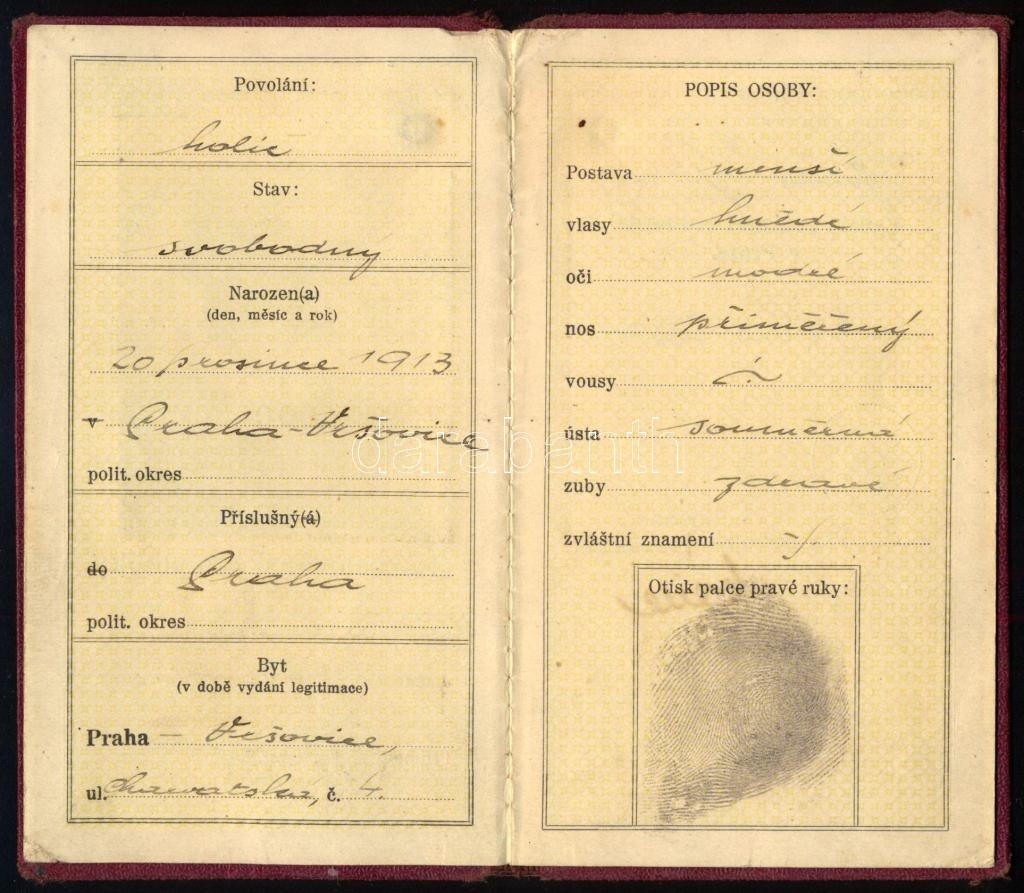 Povolání:
holič
Stav:
svobodný
Narozen(a)
(den, měsíc a rok)
20 prosince 1913
v Praha-Vršovice
polit. okres
Příslušný(á)
do Praha
polit. okres
Byt
(v době vydání legitimace)
Praha – Vršovice,
ul. č. 4.
POPIS OSOBY:
Postava menší
vlasy hnědé
oči modré
nos přiměřený
vousy
ústa souměrná
zuby zdravé
zvláštní znamení
Otisk palce pravé ruky:
darabanth